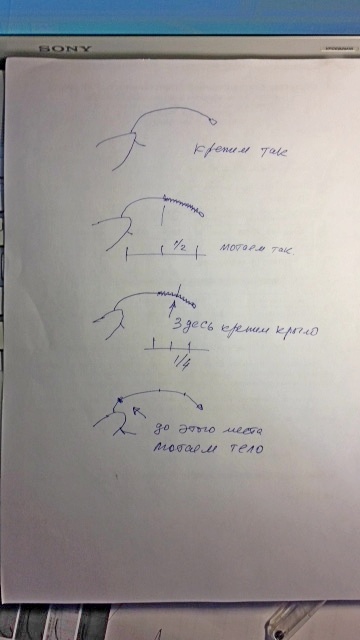 SONY
крепим так
1/2
мотаем так
Здесь крепим крыло
1/4
до этого места
мотаем тело